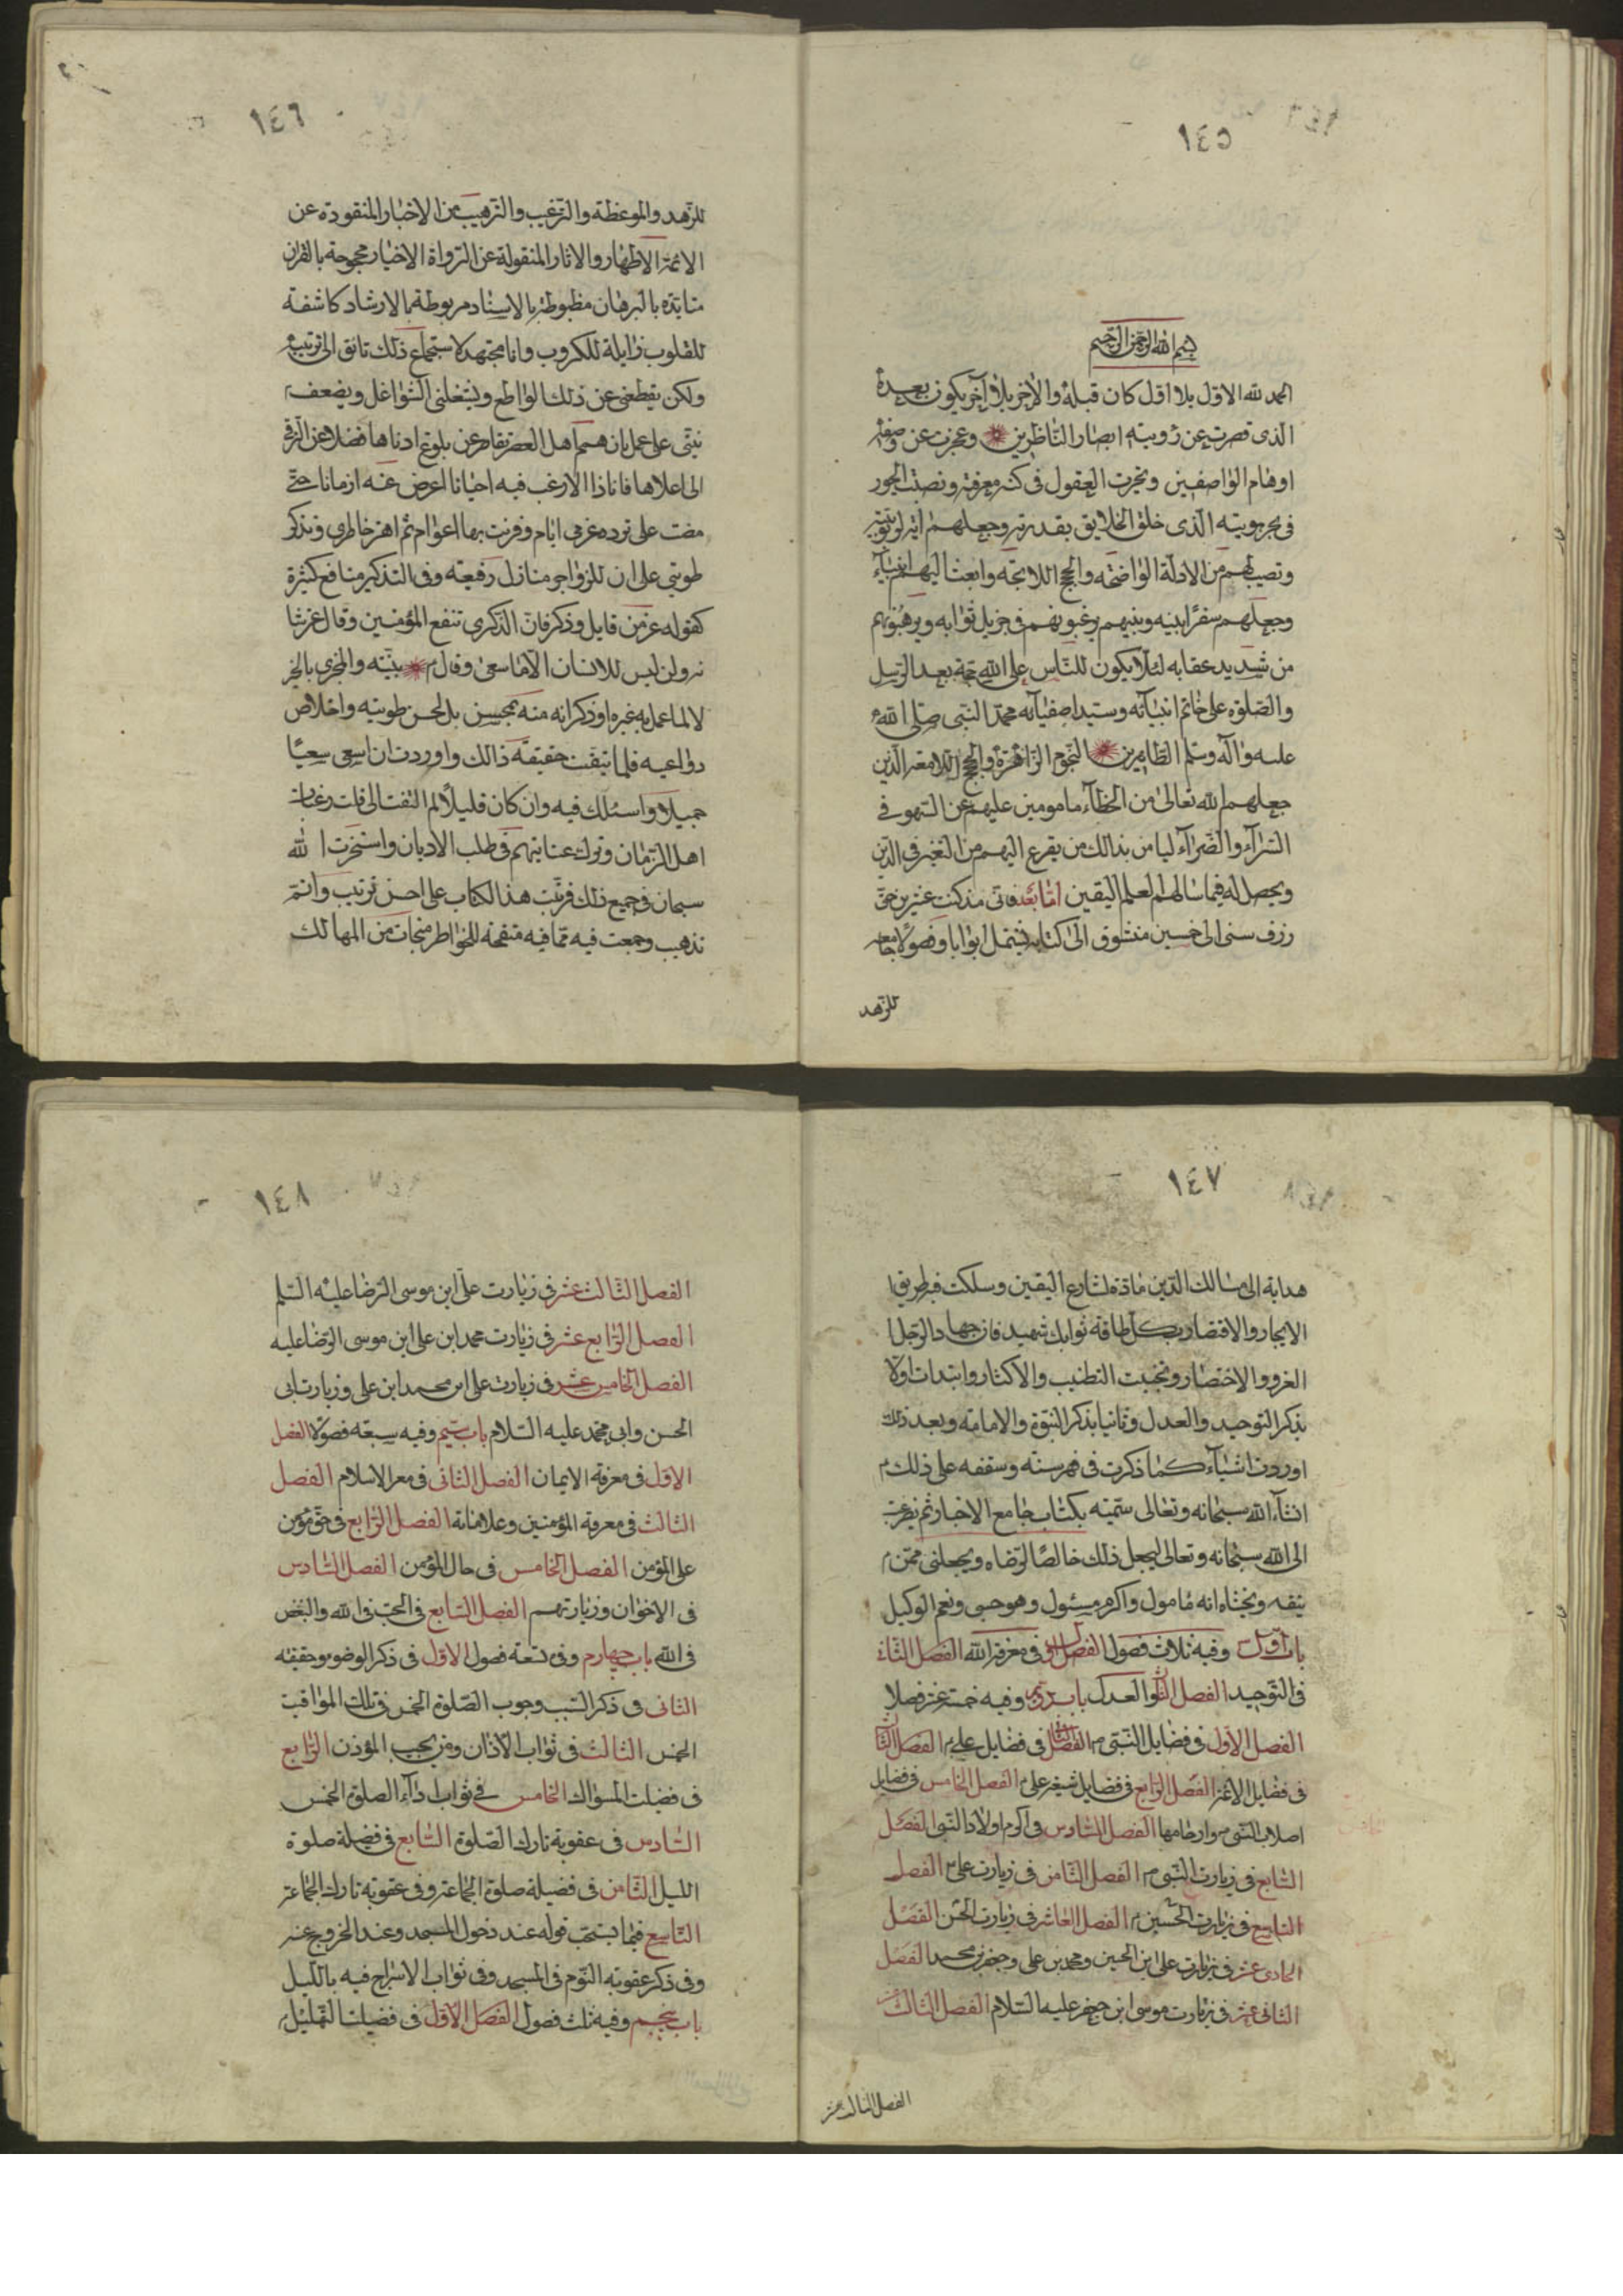 ١٤٥
بسم الله الرحمن الرحيم
الحمد لله الاول بلا اول كان قبله والاخر بلا آخر يكون بعده
الذى قصرت عن رؤيته ابصار الناظرين وعجزت عن وصفه
اوهام الواصفين وتحيرت العقول فى كنه معرفته
الذى خلق الخلايق بقدرته وجعلهم
ونصب لهم من الادلة الواضحه والحجج اللايحه وابعث اليهم انبيآء
وجعلهم سفرا بينه وبينهم يرغبونهم فى جزيل ثوابه ويرهبونهم
من شديد عقابه لئلا يكون للناس على الله حجة بعد الرسل
والصلوة على خاتم انبيآئه وسيد اصفيآئه محمد النبى صلى الله
عليه وآله وسلم الطاهرين النجوم الزاهرة والحجج اللامعه الذين
جعلهم الله تعالى من الخطآء مامومين عليهم عن السهو فى
السرآء والضرآء ليامن بذالك من يفزع اليهم من التغير فى الدين
ويحصل له فيما سالهم العلم اليقين اما بعد فانى مذ كنت عشرين حتى
سنى الى خمسين متشوق الى كتابه يشتمل ابوابا وفصولا جامعه
للزهد
١٤٦
للزهد والموعظة والترغيب والترهيب من الاخبار المنقوده عن
الائمة الاطهار والاثار المنقولة عن الرواة الاخيار محجوجة بالقران
متايده بالبرهان مظبوطة بالاسناد مربوطة بالارشاد كاشفة
للقلوب زايلة للكروب وانا مجتهد لاستجماع ذلك تائق الى ترتيبه
ولكن يقطعنى عن ذلك القواطع ويشغلنى الشواغل ويضعف
نيتى على عمل بان همم اهل العصر تقاصر عن بلوغ ادناها فضلا عن الترقى
الى اعلاها فاناذا الارغب فيه احيانا اعرض عنه ازمانا حتى
مضت على ايام وقرنت بها اعوام ثم اهز خاطرى وتذكر
طويتى على ان للزواجر منازل رفيعة وفى التذكير منافع كثيرة
كقوله عز من قايل وذكر فان الذكرى تنفع المؤمنين وقال عز شا
نه وان ليس للانسان الا ما سعى وقال بنيته والمجزى بالخير
لا لما عمل به غيره او ذكرانه منه بل لحسن طويته واخلاص
دواعيه فلما تيقنت حقيقة ذالك واوردت ان اسعى سعيا
جميلا واسئلك فيه وان كان قليلا لم التفت الى قلت رغبات
اهل الزمان وترك عنايتهم فى طلب الاديان واستخرت الله
سبحان فى جميع ذلك فرتبت هذا الكتاب على احسن ترتيب واتم
تذهيب وجمعت فيه مما فيه منفعة للخواطر منجات من المهالك
١٤٧
هداية الى مسالك الدين مآذة لشارع اليقين وسلكت فيه طريق
الايجاز والاقتصار
الغرور والاختصار وتجنبت التطنيب والاكثار وابتدات اولا
بذكر التوحيد والعدل وثانيا بذكر النبوة والامامة وبعد ذلك
اوردت اشيآء كما ذكرت فى فهرسته وستقفه على ذلك
انشآء الله سبحانه وتعالى سميته بكتاب جامع الاخبار ثم نرغب
الى الله سبحانه وتعالى ليجعل ذلك خالصا لرضاه ويجعلنى ممن
يتقه ويخشاه انه مامول واكرم مسئول وهو حسبى ونعم الوكيل
باب اول وفيه ثلاث فصول الفصل الاول فى معرفة الله الفصل الثانى
فى التوحيد الفصل الثالث العدل باب دويم وفيه خمسة عشر فصلا
الفصل الاول فى فضايل النبى م الفصل الثانى فى فضايل على م الفصل الثالث
فى فضايل الائمة الفصل الرابع فى فضايل شيعة على م الفصل الخامس فى فضايل
اصلاب النبى م وارحامها الفصل السادس فى اكرام اولاد النبى الفصل
السابع فى زيارت النبى م الفصل الثامن فى زيارت على م الفصل
التاسع فى زيارت الحسين م الفصل العاشر فى زيارت الحسن الفصل
الحادى عشر فى زيارت على ابن الحسين ومحمد بن على وجعفر بن محمد الفصل
الثانى عشر فى زيارت موسى ابن جعفر عليه السلام الفصل الثالث عشر
الفصل الثالث عشر
١٤٨
الفصل الثالث عشر فى زيارت على ابن موسى الرضا عليه السلم
الفصل الرابع عشر فى زيارت محمد ابن على ابن موسى الرضا عليه
الفصل الخامس عشر فى زيارت على ابن محمد ابن على وزيارت ابى
الحسن وابى محمد عليه السلام باب سيم وفيه سبعه فصولا الفصل
الاول فى معرفة الايمان الفصل الثانى فى معر الاسلام الفصل
الثالث فى معرفة المؤمنين وعلاماته الفصل الرابع فى حق مؤمن
على المؤمن الفصل الخامس فى حال المؤمن الفصل السادس
فى الاخوان وزيارتهم الفصل السابع فى الحب فى الله والبغض
فى الله باب چهارم وفى تسعة فصول الاول فى ذكر الوضوء وحقيقته
الثانى فى ذكر السبب وجوب الصلوة الخمس فى تلك المواقيت
الخمس الثالث فى ثواب الآذان ومن يجيب المؤذن الرابع
فى فضيلت المسواك الخامس فى ثواب ادآء الصلوة الخمس
السادس فى عقوبة تارك الصلوة السابع فى فضيلة صلوة
الليل الثامن فى فضيلة صلوة الجماعة وفى عقوبة تارك الجماعة
التاسع فيما يستحب قوله عند دخول المسجد وعند الخروج عنه
وفى ذكر عقوبة النوم فى المسجد وفى ثواب الاسراج فيه بالليل
باب پنجم وفيه ثلث فصول الفصل الاول فى فضيلت التهليل